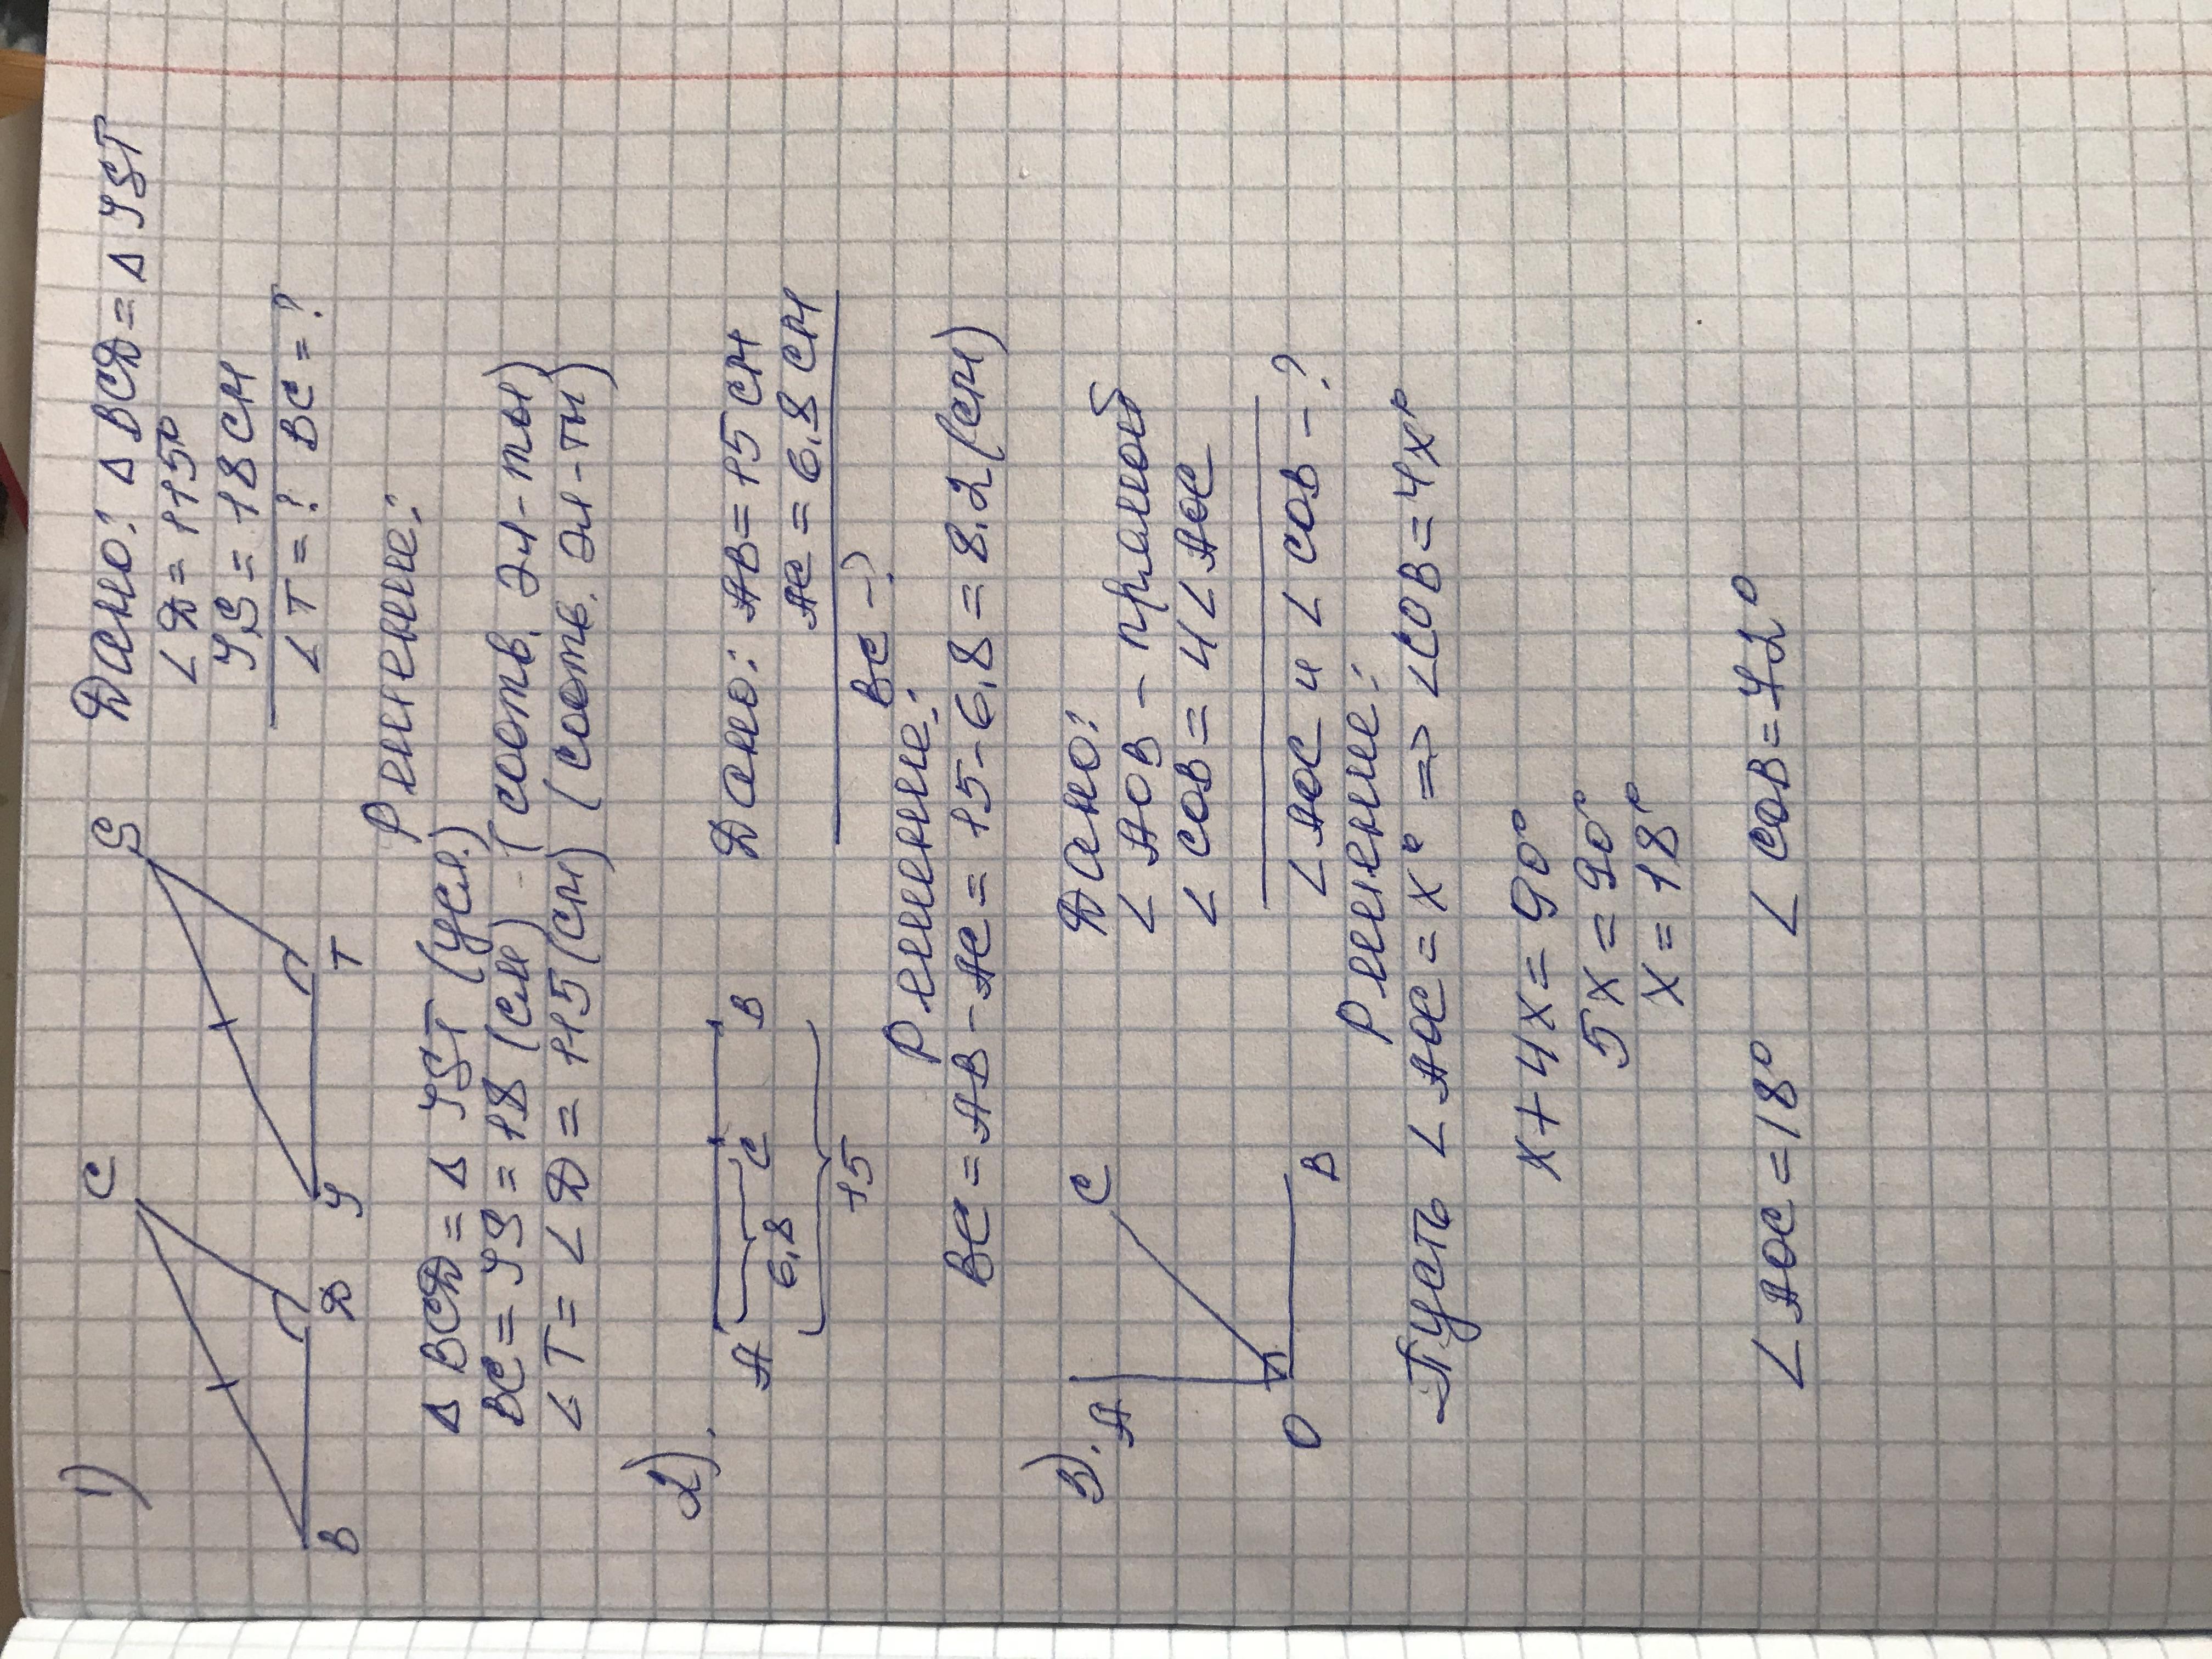 1)
C
S
B
D
У
T
Дано: Δ BCD = Δ УST
∠ D = 115°
УS = 18 см
∠ T = ? BC = ?
Решение:
Δ BCD = Δ УST (усл.)
BC = УS = 18 (см) - (соотв. эл-ты)
∠ T = ∠ D = 115 (см) (соотв. эл-ты)
2).
A
C
B
6,8
15
Дано: AB = 15 см
AC = 6,8 см
BC - ?
Решение:
BC = AB - AC = 15 - 6,8 = 8,2 (см)
3).
A
C
O
B
Дано:
∠ AOB - прямой
∠ COB = 4∠ AOC
∠ AOC и ∠ COB - ?
Решение:
Пусть ∠ AOC = x° => ∠COB = 4x°
x + 4x = 90°
5x = 90°
x = 18°
∠ AOC = 18° ∠ COB = 72°